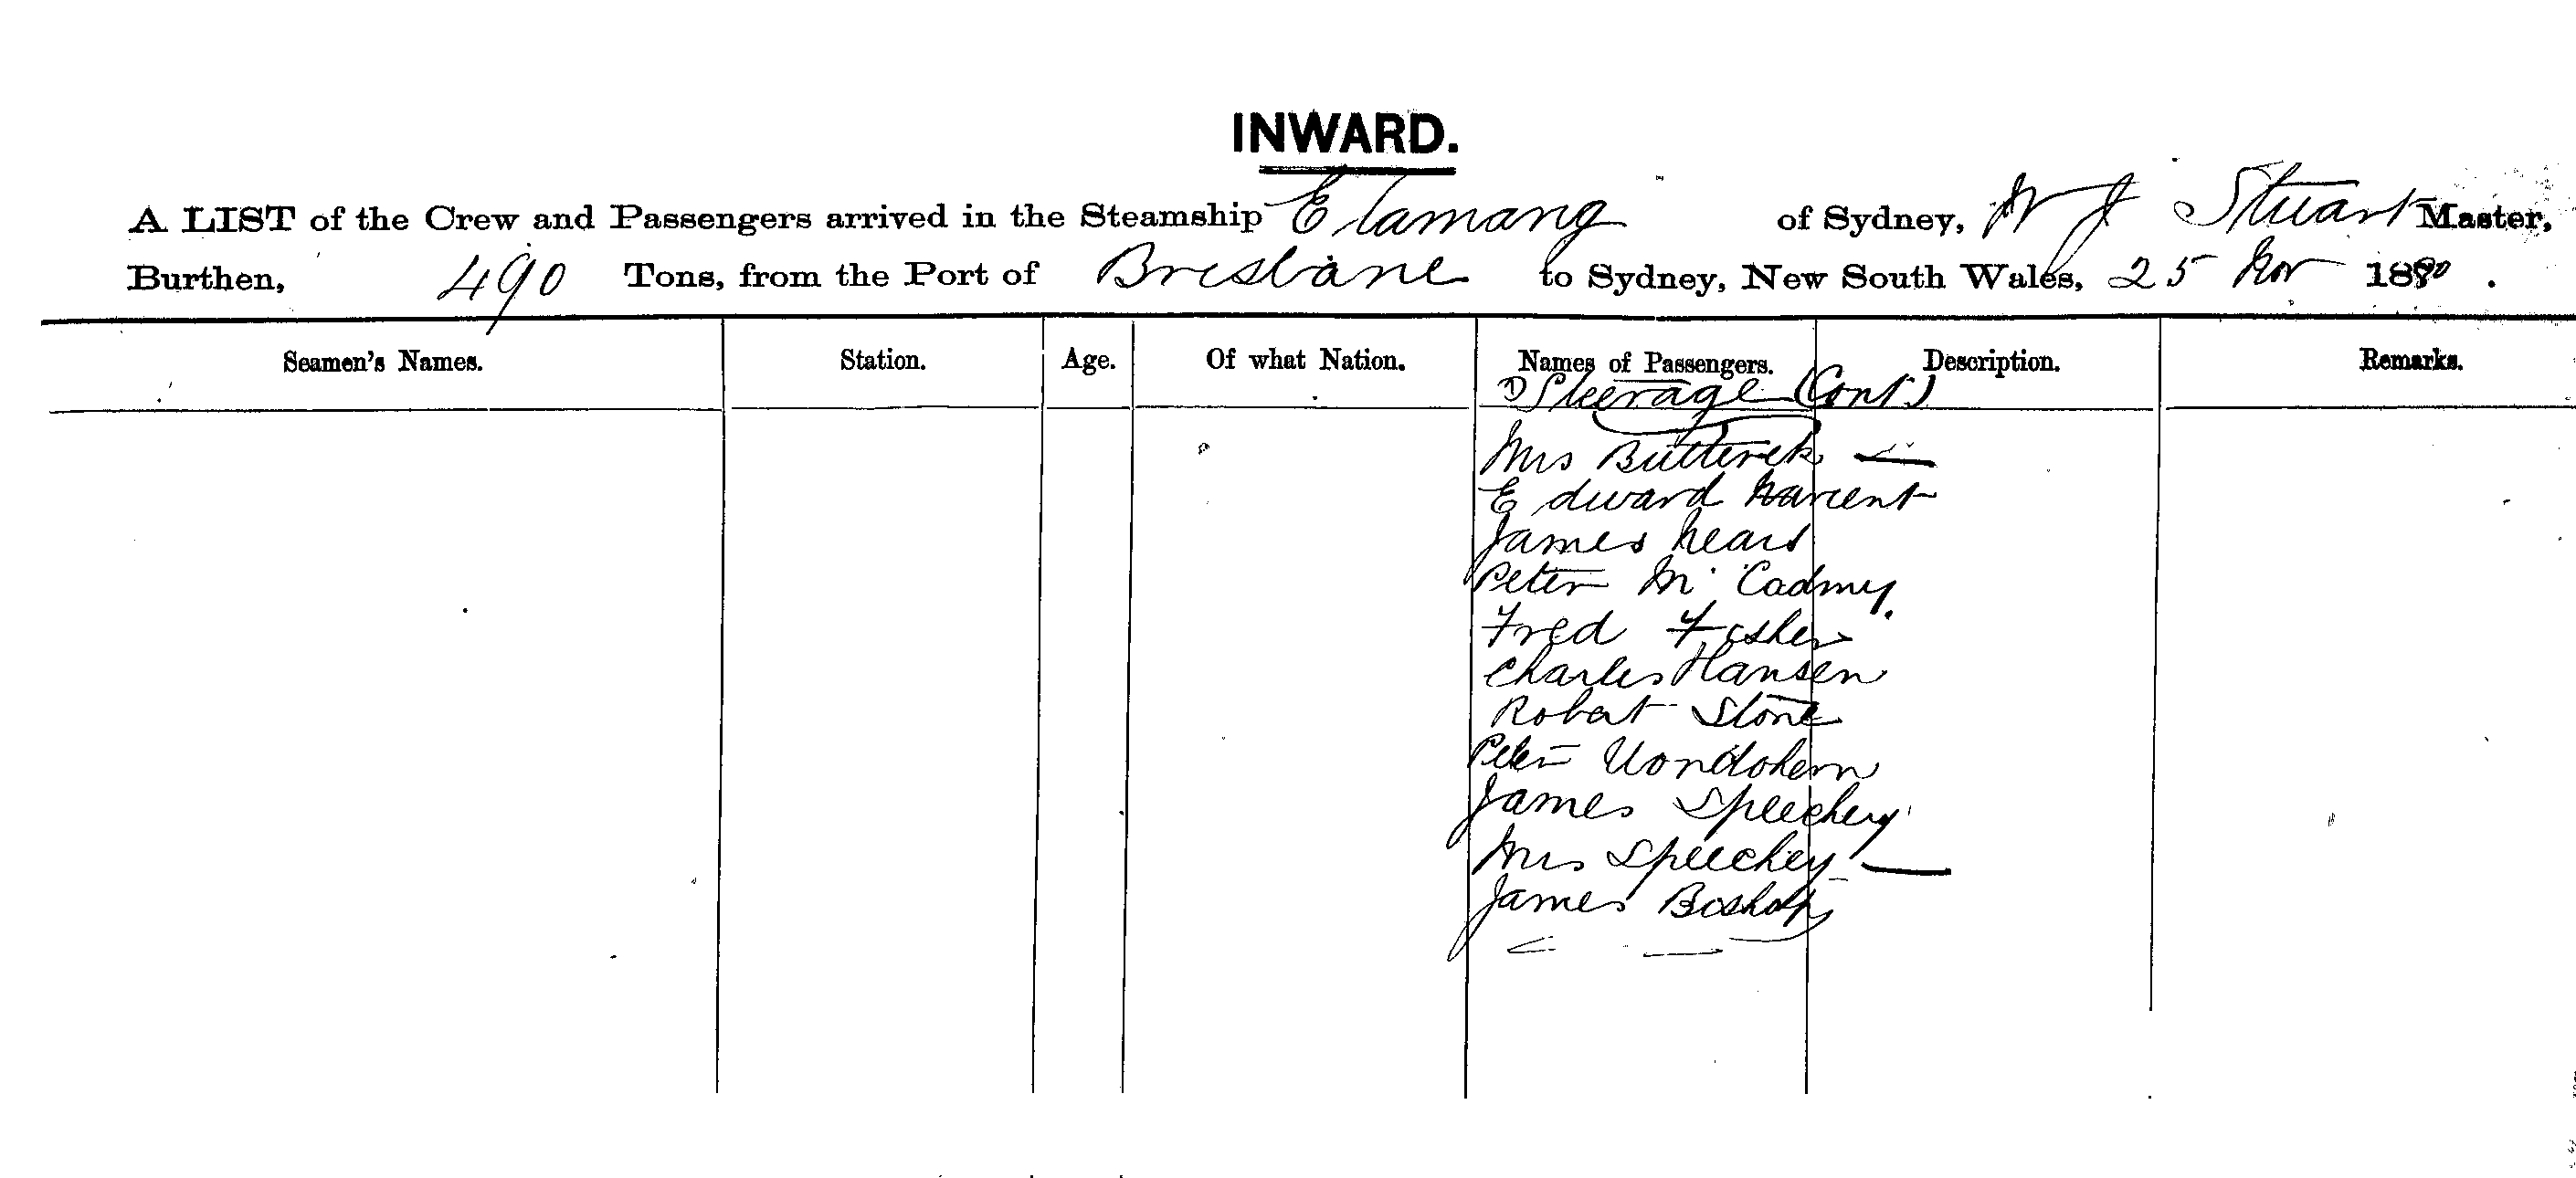 INWARD.
A LIST of the Crew and Passengers arrived in the Steamship Elamang of Sydney, W J Stuart Master,
Burthen, 490 Tons, from the Port of Brisbane to Sydney, New South Wales, 25 Nov 1890.
Seamen's Names. Station. Age. Of what Nation. Names of Passengers. Description. Remarks.
Steerage (Cont)
Mrs Butterek
Edward
James
Peter Mc Cadmy
Fred Fisher
Charles Hansen
Robert Stone
Peter Vondohern
James Speechey
Mrs Speechey
James Boshop